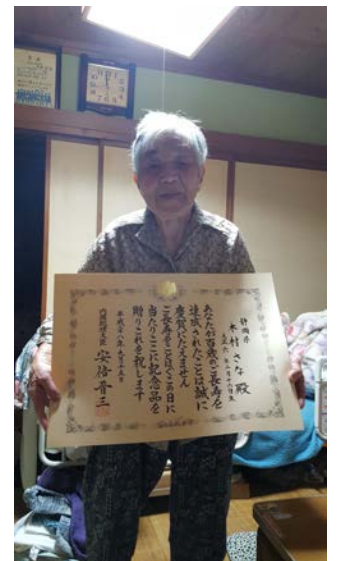 静岡県
木村さな殿
あなたが百歳のご長寿を
達成されたことは誠に
慶賀にたえません
ご長寿をことほぎこの日に
当たりここに記念品を
贈りこれを祝します
平成廿八年九月十五日
内閣総理大臣 安倍晋三